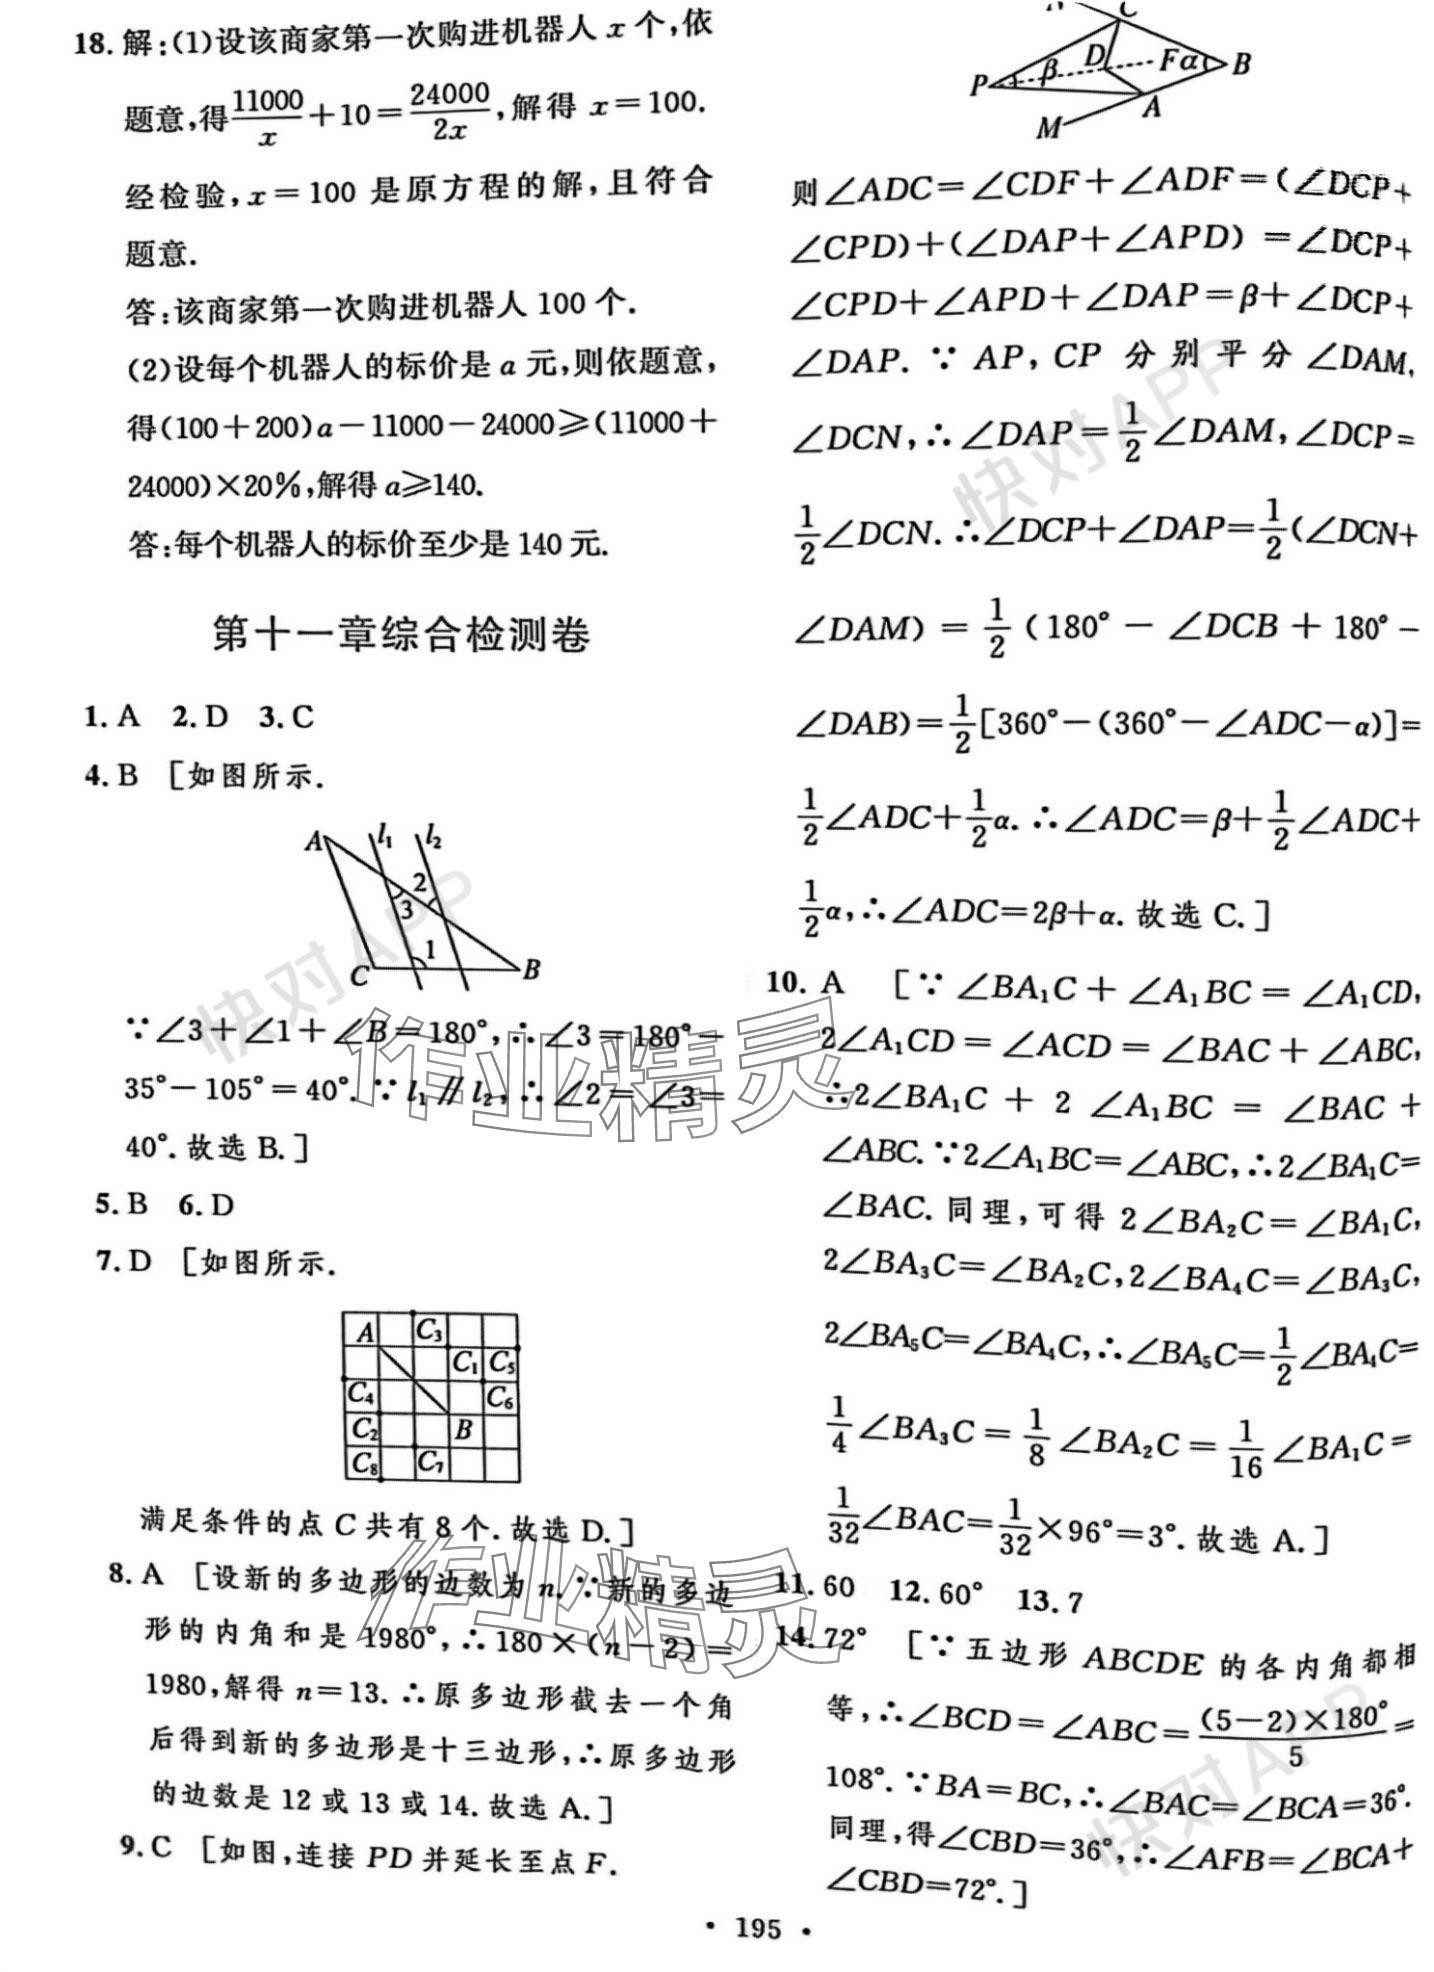 18. 解:(1)设该商家第一次购进机器人 x 个,依
题意,得 11000/x + 10 = 24000/2x ,解得 x=100.
经检验,x=100 是原方程的解,且符合
题意.
答:该商家第一次购进机器人 100 个.
(2)设每个机器人的标价是 a 元,则依题意,
得(100+200)a-11000-24000≥(11000+
24000)×20%,解得 a≥140.
答:每个机器人的标价至少是 140 元.
第十一章综合检测卷
1. A 2. D 3. C
4. B [如图所示.
A l₁ l₂
2
3
1
C B
∵∠3+∠1+∠B=180°,∴∠3=180°-
35°-105°=40°.∵l₁∥l₂,∴∠2=∠3=
40°.故选 B.]
5. B 6. D
7. D [如图所示.
A C₃
C₁ C₅
C₄ C₆
C₂ B
C₈ C₇
满足条件的点 C 共有 8 个.故选 D.]
8. A [设新的多边形的边数为 n.∵新的多边
形的内角和是 1980°,∴180×(n-2)=
1980,解得 n=13.∴原多边形截去一个角
后得到新的多边形是十三边形,∴原多边形
的边数是 12 或 13 或 14.故选 A.]
9. C [如图,连接 PD 并延长至点 F.
N C
D F α B
P β
A
M
则∠ADC=∠CDF+∠ADF=(∠DCP+
∠CPD)+(∠DAP+∠APD)=∠DCP+
∠CPD+∠APD+∠DAP=β+∠DCP+
∠DAP.∵AP,CP 分别平分∠DAM,
∠DCN,∴∠DAP=1/2∠DAM,∠DCP=
1/2∠DCN.∴∠DCP+∠DAP=1/2(∠DCN+
∠DAM)=1/2(180°-∠DCB+180°-
∠DAB)=1/2[360°-(360°-∠ADC-α)]=
1/2∠ADC+1/2α.∴∠ADC=β+1/2∠ADC+
1/2α,∴∠ADC=2β+α.故选 C.]
10. A [∵∠BA₁C+∠A₁BC=∠A₁CD,
2∠A₁CD=∠ACD=∠BAC+∠ABC,
∴2∠BA₁C+2∠A₁BC=∠BAC+
∠ABC.∵2∠A₁BC=∠ABC,∴2∠BA₁C=
∠BAC.同理,可得 2∠BA₂C=∠BA₁C,
2∠BA₃C=∠BA₂C,2∠BA₄C=∠BA₃C,
2∠BA₅C=∠BA₄C,∴∠BA₅C=1/2∠BA₄C=
1/4∠BA₃C=1/8∠BA₂C=1/16∠BA₁C=
1/32∠BAC=1/32×96°=3°.故选 A.]
11. 60 12. 60° 13. 7
14. 72° [∵五边形 ABCDE 的各内角都相
等,∴∠BCD=∠ABC=(5-2)×180°/5=
108°.∵BA=BC,∴∠BAC=∠BCA=36°.
同理,得∠CBD=36°,∴∠AFB=∠BCA+
∠CBD=72°.]
· 195 ·
快对APP
快对APP
快对APP
作业精灵
作业精灵